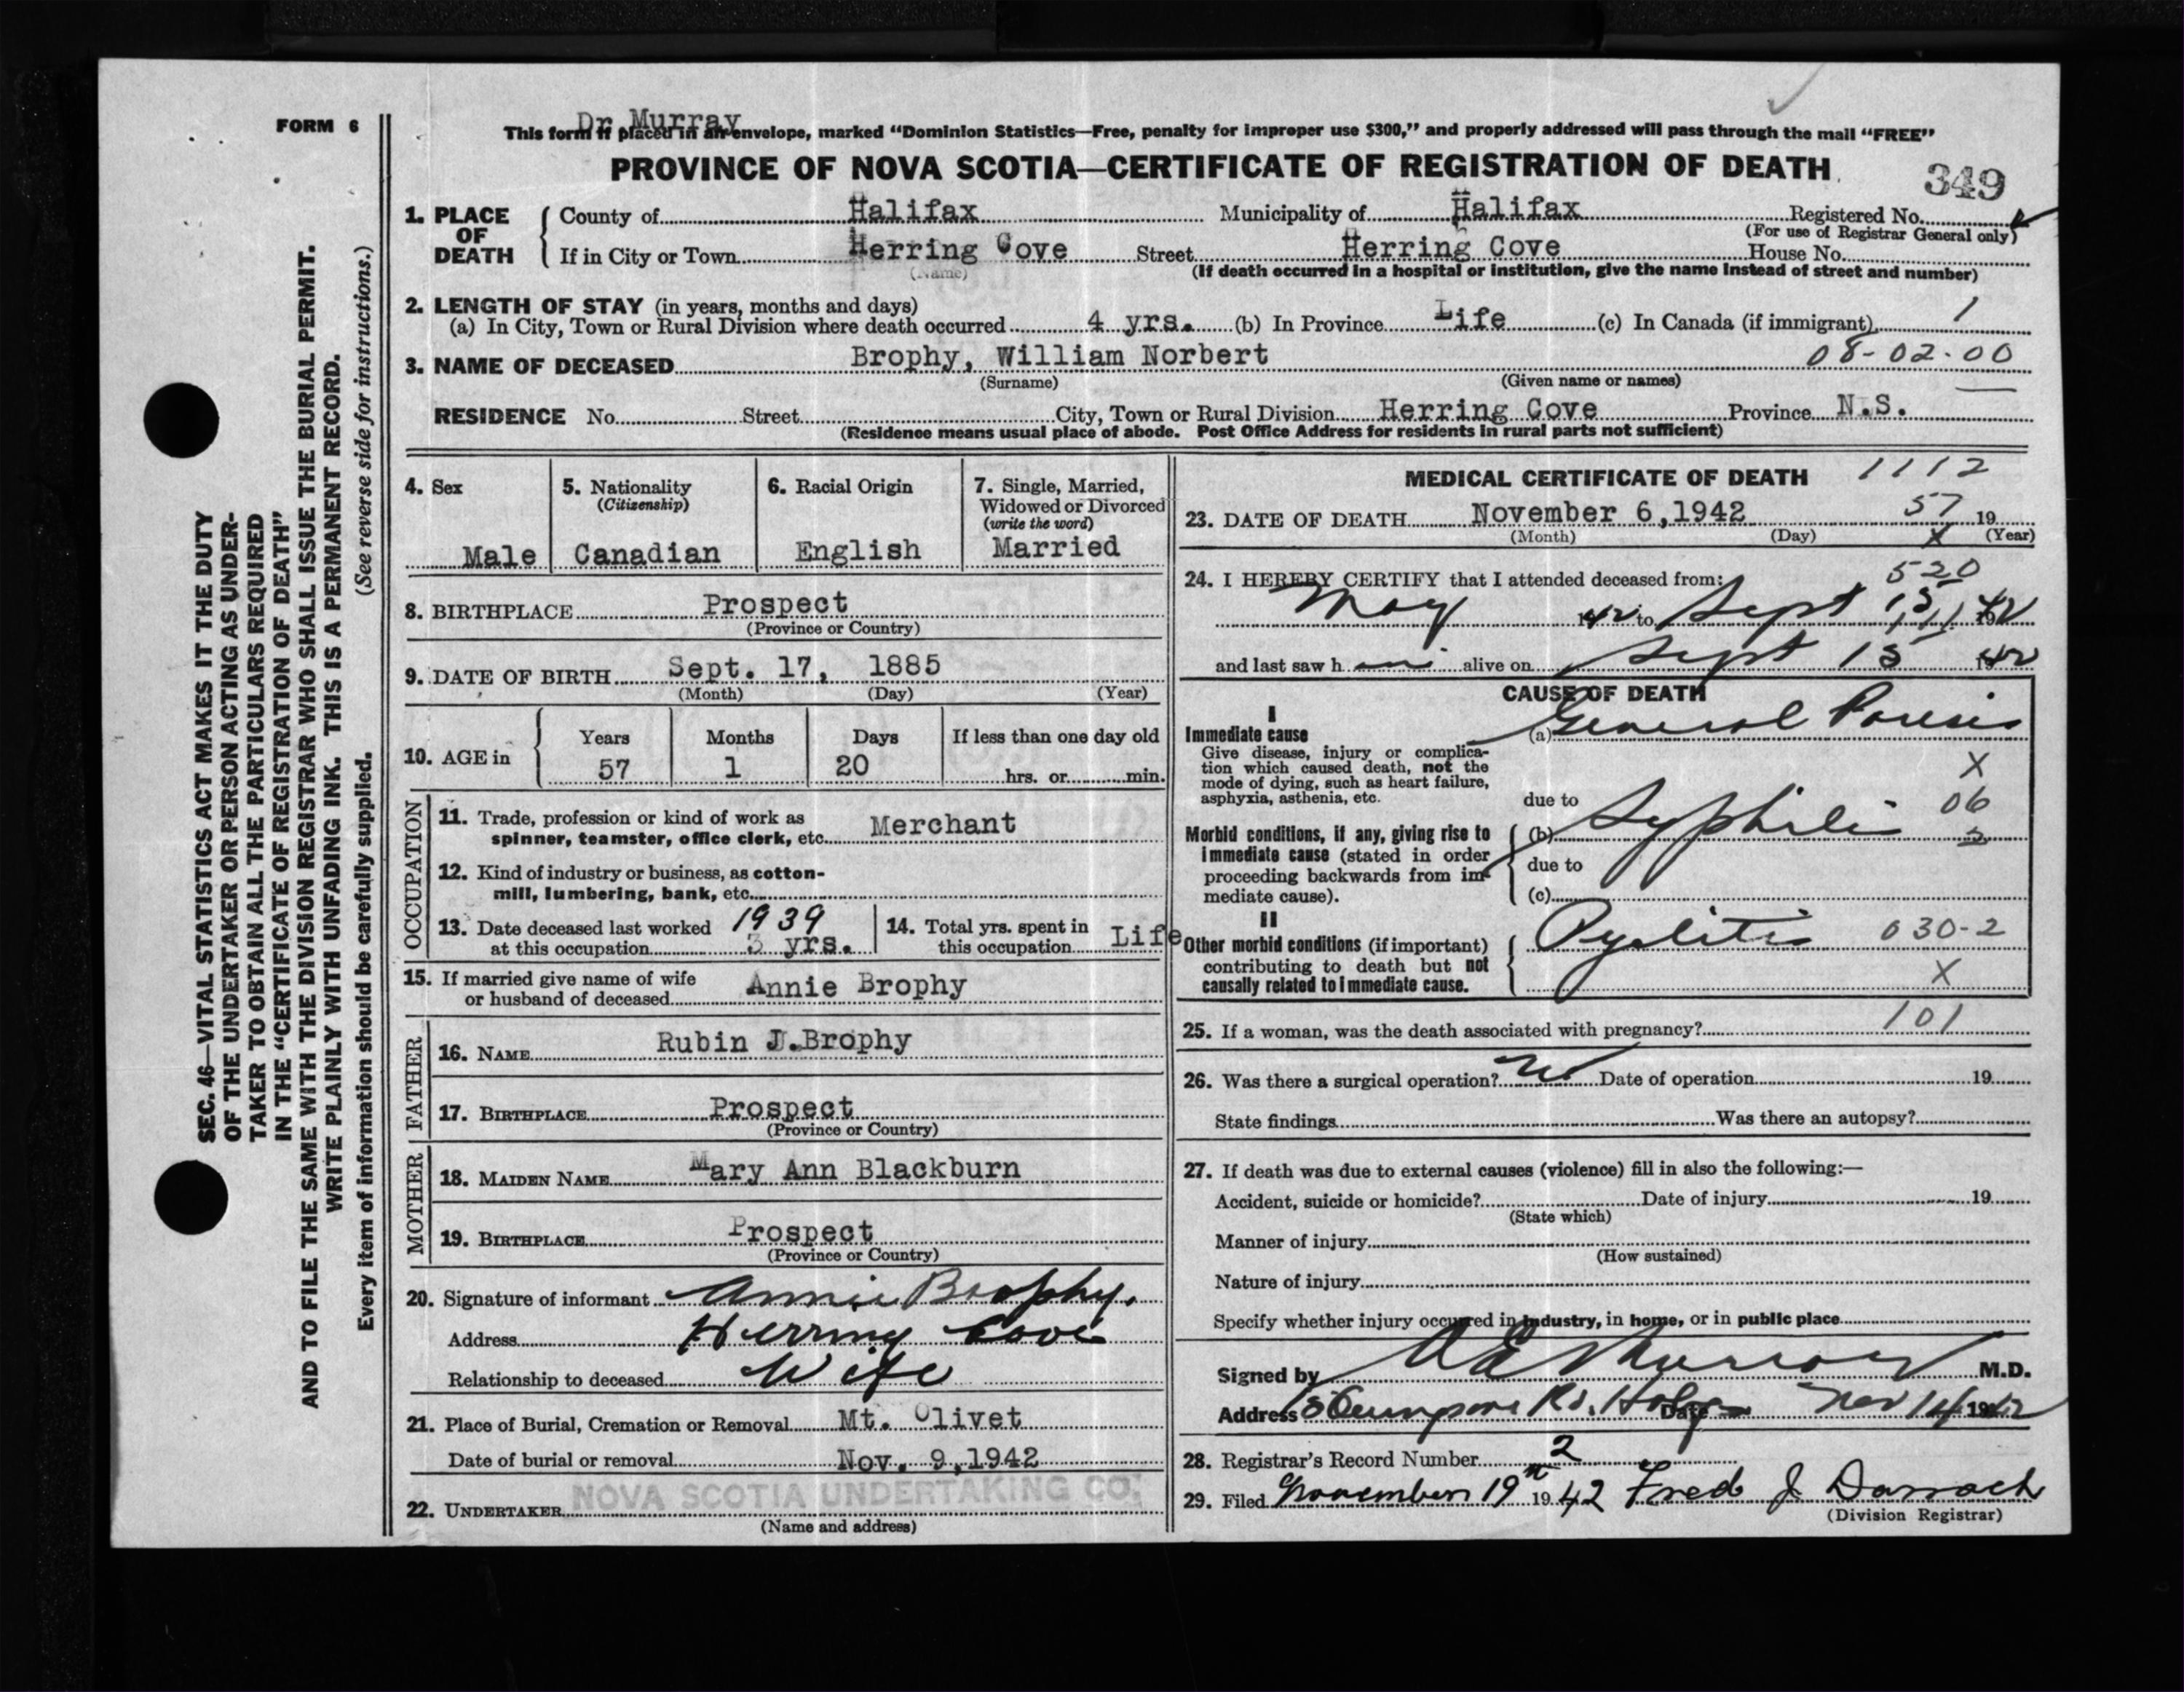 FORM 6
Dr Murray
This form if placed in an envelope, marked "Dominion Statistics—Free, penalty for improper use $300," and properly addressed will pass through the mail "FREE"
PROVINCE OF NOVA SCOTIA—CERTIFICATE OF REGISTRATION OF DEATH
349
1. PLACE OF DEATH County of Halifax Municipality of Halifax Registered No.
(For use of Registrar General only)
If in City or Town Herring Cove Street Herring Cove House No.
(Name) (If death occurred in a hospital or institution, give the name instead of street and number)
2. LENGTH OF STAY (in years, months and days)
(a) In City, Town or Rural Division where death occurred 4 yrs. (b) In Province Life (c) In Canada (if immigrant) 1
3. NAME OF DECEASED Brophy, William Norbert 08-02-00
(Surname) (Given name or names)
RESIDENCE No. Street City, Town or Rural Division Herring Cove Province N.S.
(Residence means usual place of abode. Post Office Address for residents in rural parts not sufficient)
4. Sex
Male
5. Nationality
(Citizenship)
Canadian
6. Racial Origin
English
7. Single, Married,
Widowed or Divorced
(write the word)
Married
8. BIRTHPLACE Prospect
(Province or Country)
9. DATE OF BIRTH Sept. 17, 1885
(Month) (Day) (Year)
10. AGE in
Years Months Days If less than one day old
57 1 20 hrs. or min.
OCCUPATION
11. Trade, profession or kind of work as
spinner, teamster, office clerk, etc. Merchant
12. Kind of industry or business, as cotton-
mill, lumbering, bank, etc.
13. Date deceased last worked 1939
at this occupation 3 yrs.
14. Total yrs. spent in
this occupation Life
15. If married give name of wife
or husband of deceased Annie Brophy
FATHER
16. NAME Rubin J. Brophy
17. BIRTHPLACE Prospect
(Province or Country)
MOTHER
18. MAIDEN NAME Mary Ann Blackburn
19. BIRTHPLACE Prospect
(Province or Country)
20. Signature of informant Annie Brophy.
Address Herring Cove
Relationship to deceased Wife
21. Place of Burial, Cremation or Removal Mt. Olivet
Date of burial or removal Nov. 9, 1942
22. UNDERTAKER NOVA SCOTIA UNDERTAKING CO.
(Name and address)
MEDICAL CERTIFICATE OF DEATH 1112
23. DATE OF DEATH November 6, 1942 57 19
(Month) (Day) X (Year)
24. I HEREBY CERTIFY that I attended deceased from: 520
May 1942 to Sept 15 1942
and last saw him alive on Sept 15 1942
CAUSE OF DEATH
I
Immediate cause (a) General Paresis
Give disease, injury or complica-
tion which caused death, not the
mode of dying, such as heart failure,
asphyxia, asthenia, etc.
X
due to 06
Morbid conditions, if any, giving rise to
immediate cause (stated in order
proceeding backwards from im-
mediate cause).
(b) Syphilis 3
due to
(c)
II
Other morbid conditions (if important)
contributing to death but not
causally related to immediate cause.
Pyelitis 030-2
X
25. If a woman, was the death associated with pregnancy? 101
26. Was there a surgical operation? No Date of operation 19
State findings Was there an autopsy?
27. If death was due to external causes (violence) fill in also the following:—
Accident, suicide or homicide? Date of injury 19
(State which)
Manner of injury
(How sustained)
Nature of injury
Specify whether injury occurred in industry, in home, or in public place
Signed by Murray M.D.
Address Rd. Hfx Date Nov 14 1942
28. Registrar's Record Number 2
29. Filed November 19th 1942 Fred J Darrach
(Division Registrar)
SEC. 46—VITAL STATISTICS ACT MAKES IT THE DUTY
OF THE UNDERTAKER OR PERSON ACTING AS UNDER-
TAKER TO OBTAIN ALL THE PARTICULARS REQUIRED
IN THE "CERTIFICATE OF REGISTRATION OF DEATH"
AND TO FILE THE SAME WITH THE DIVISION REGISTRAR WHO SHALL ISSUE THE BURIAL PERMIT.
WRITE PLAINLY WITH UNFADING INK. THIS IS A PERMANENT RECORD.
Every item of information should be carefully supplied. (See reverse side for instructions.)